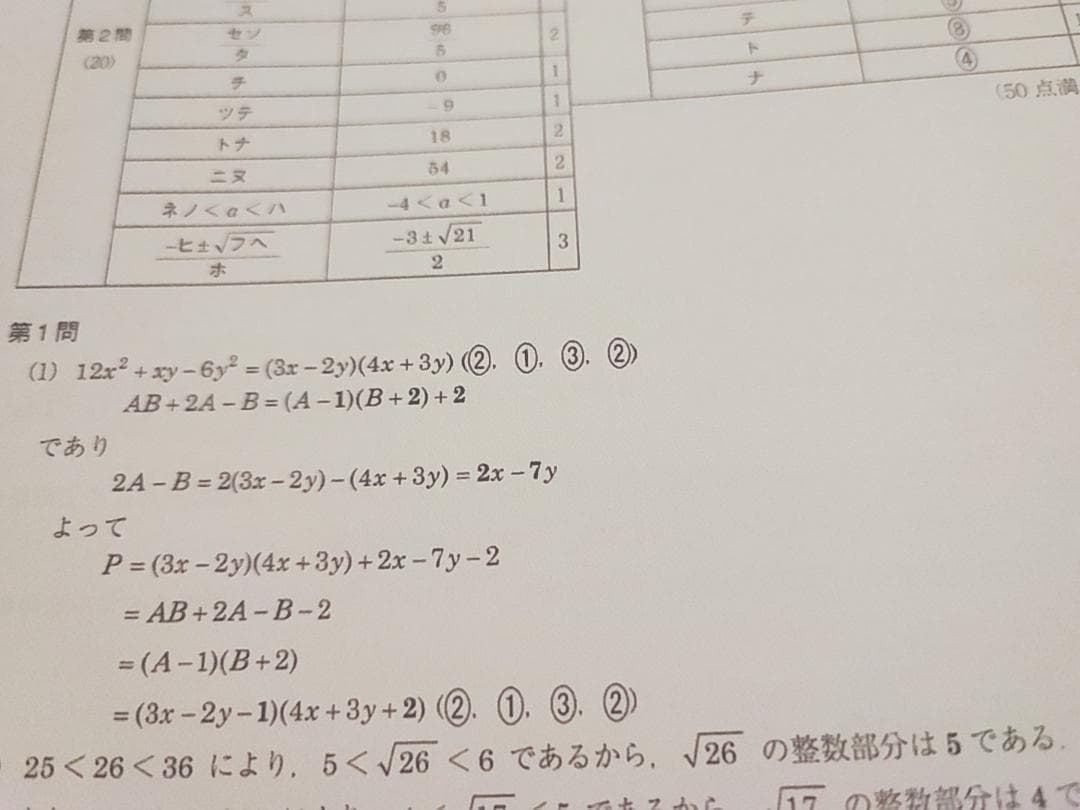 ス 5
第2問 セソ 96 2
(20) タ 5
チ 0 1
ツテ -9 1
トナ 18 2
ニヌ 54 2
ネノ<a<ハ -4<a<1 1
-ヒ±√フヘ -3±√21 3
ホ 2
テ ⑤
ト ③
ナ ④
(50点満
第1問
(1) 12x²+xy-6y²=(3x-2y)(4x+3y) (②, ①, ③, ②)
AB+2A-B=(A-1)(B+2)+2
であり
2A-B=2(3x-2y)-(4x+3y)=2x-7y
よって
P=(3x-2y)(4x+3y)+2x-7y-2
=AB+2A-B-2
=(A-1)(B+2)
=(3x-2y-1)(4x+3y+2) (②, ①, ③, ②)
25<26<36 により, 5<√26<6 であるから, √26 の整数部分は5である.
√17 <5 であるから √17 の整数部分は4で